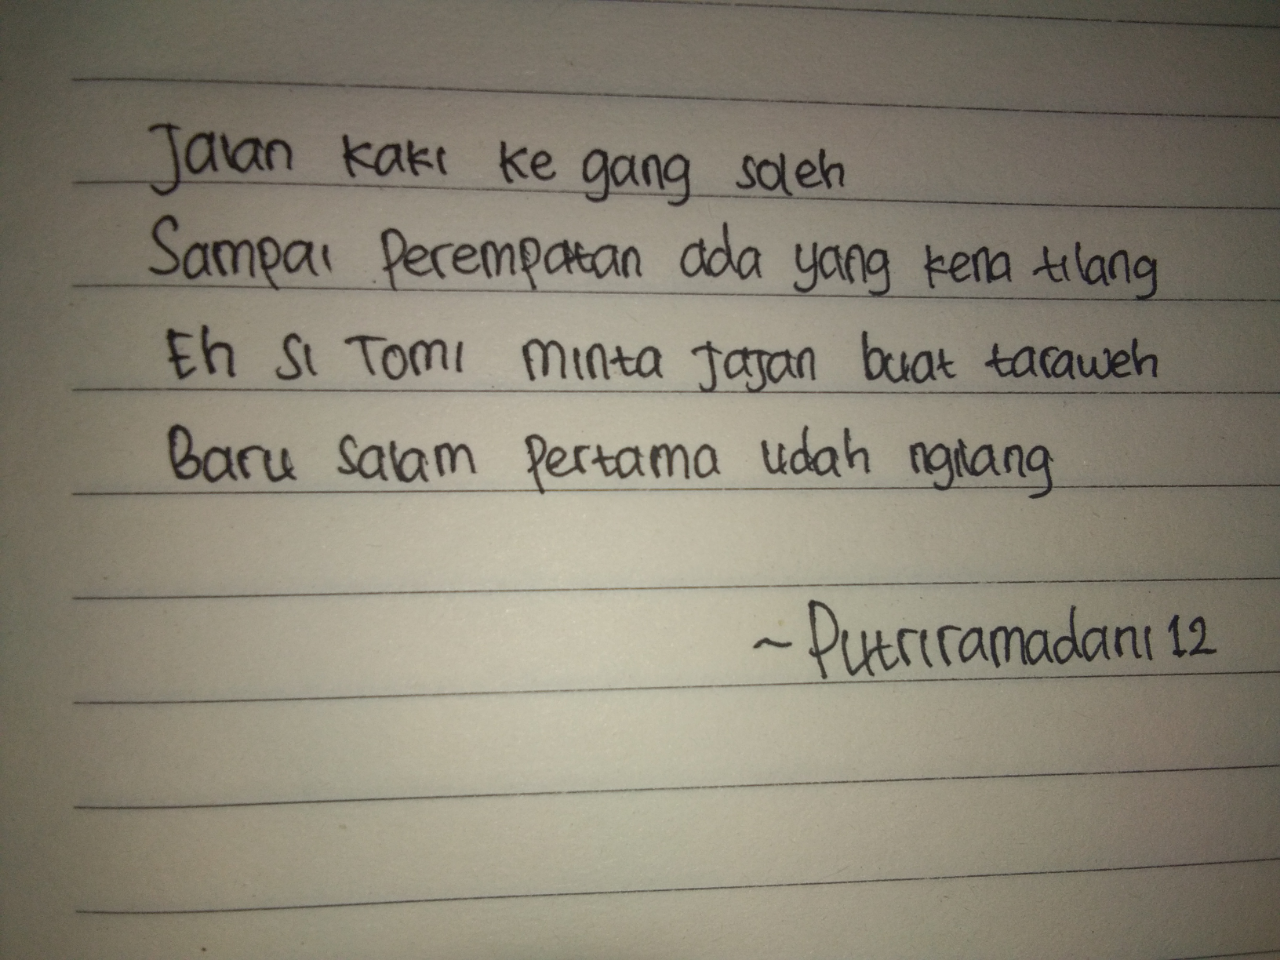 Jalan kaki ke gang soleh
Sampai Perempatan ada yang kena tilang
Eh si Tomi minta jajan buat taraweh
Baru salam pertama udah ngilang
~ Putriramadani 12